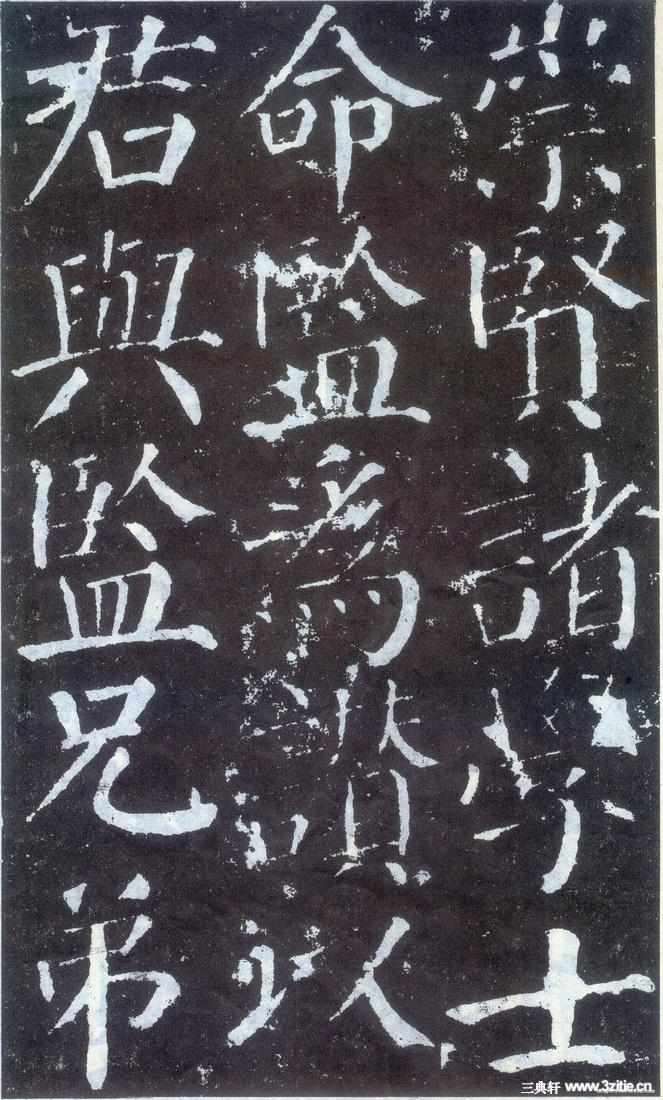 崇賢諸學士
命監為讃以
君與監兄弟
三典轩 www.3zitie.cn